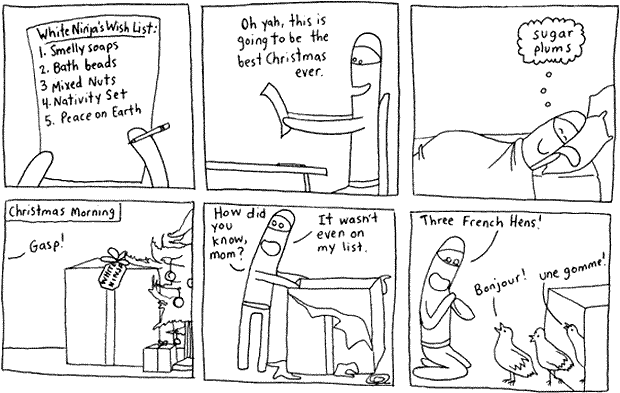 White Ninja's Wish List:
1. Smelly soaps
2. Bath beads
3 Mixed Nuts
4. Nativity Set
5. Peace on Earth
Oh yah, this is
going to be the
best Christmas
ever.
sugar
plums
Christmas Morning
Gasp!
WHITE
NINJA
How did
you
know,
mom?
It wasn't
even on
my list.
Three French Hens!
Bonjour!
une gomme!